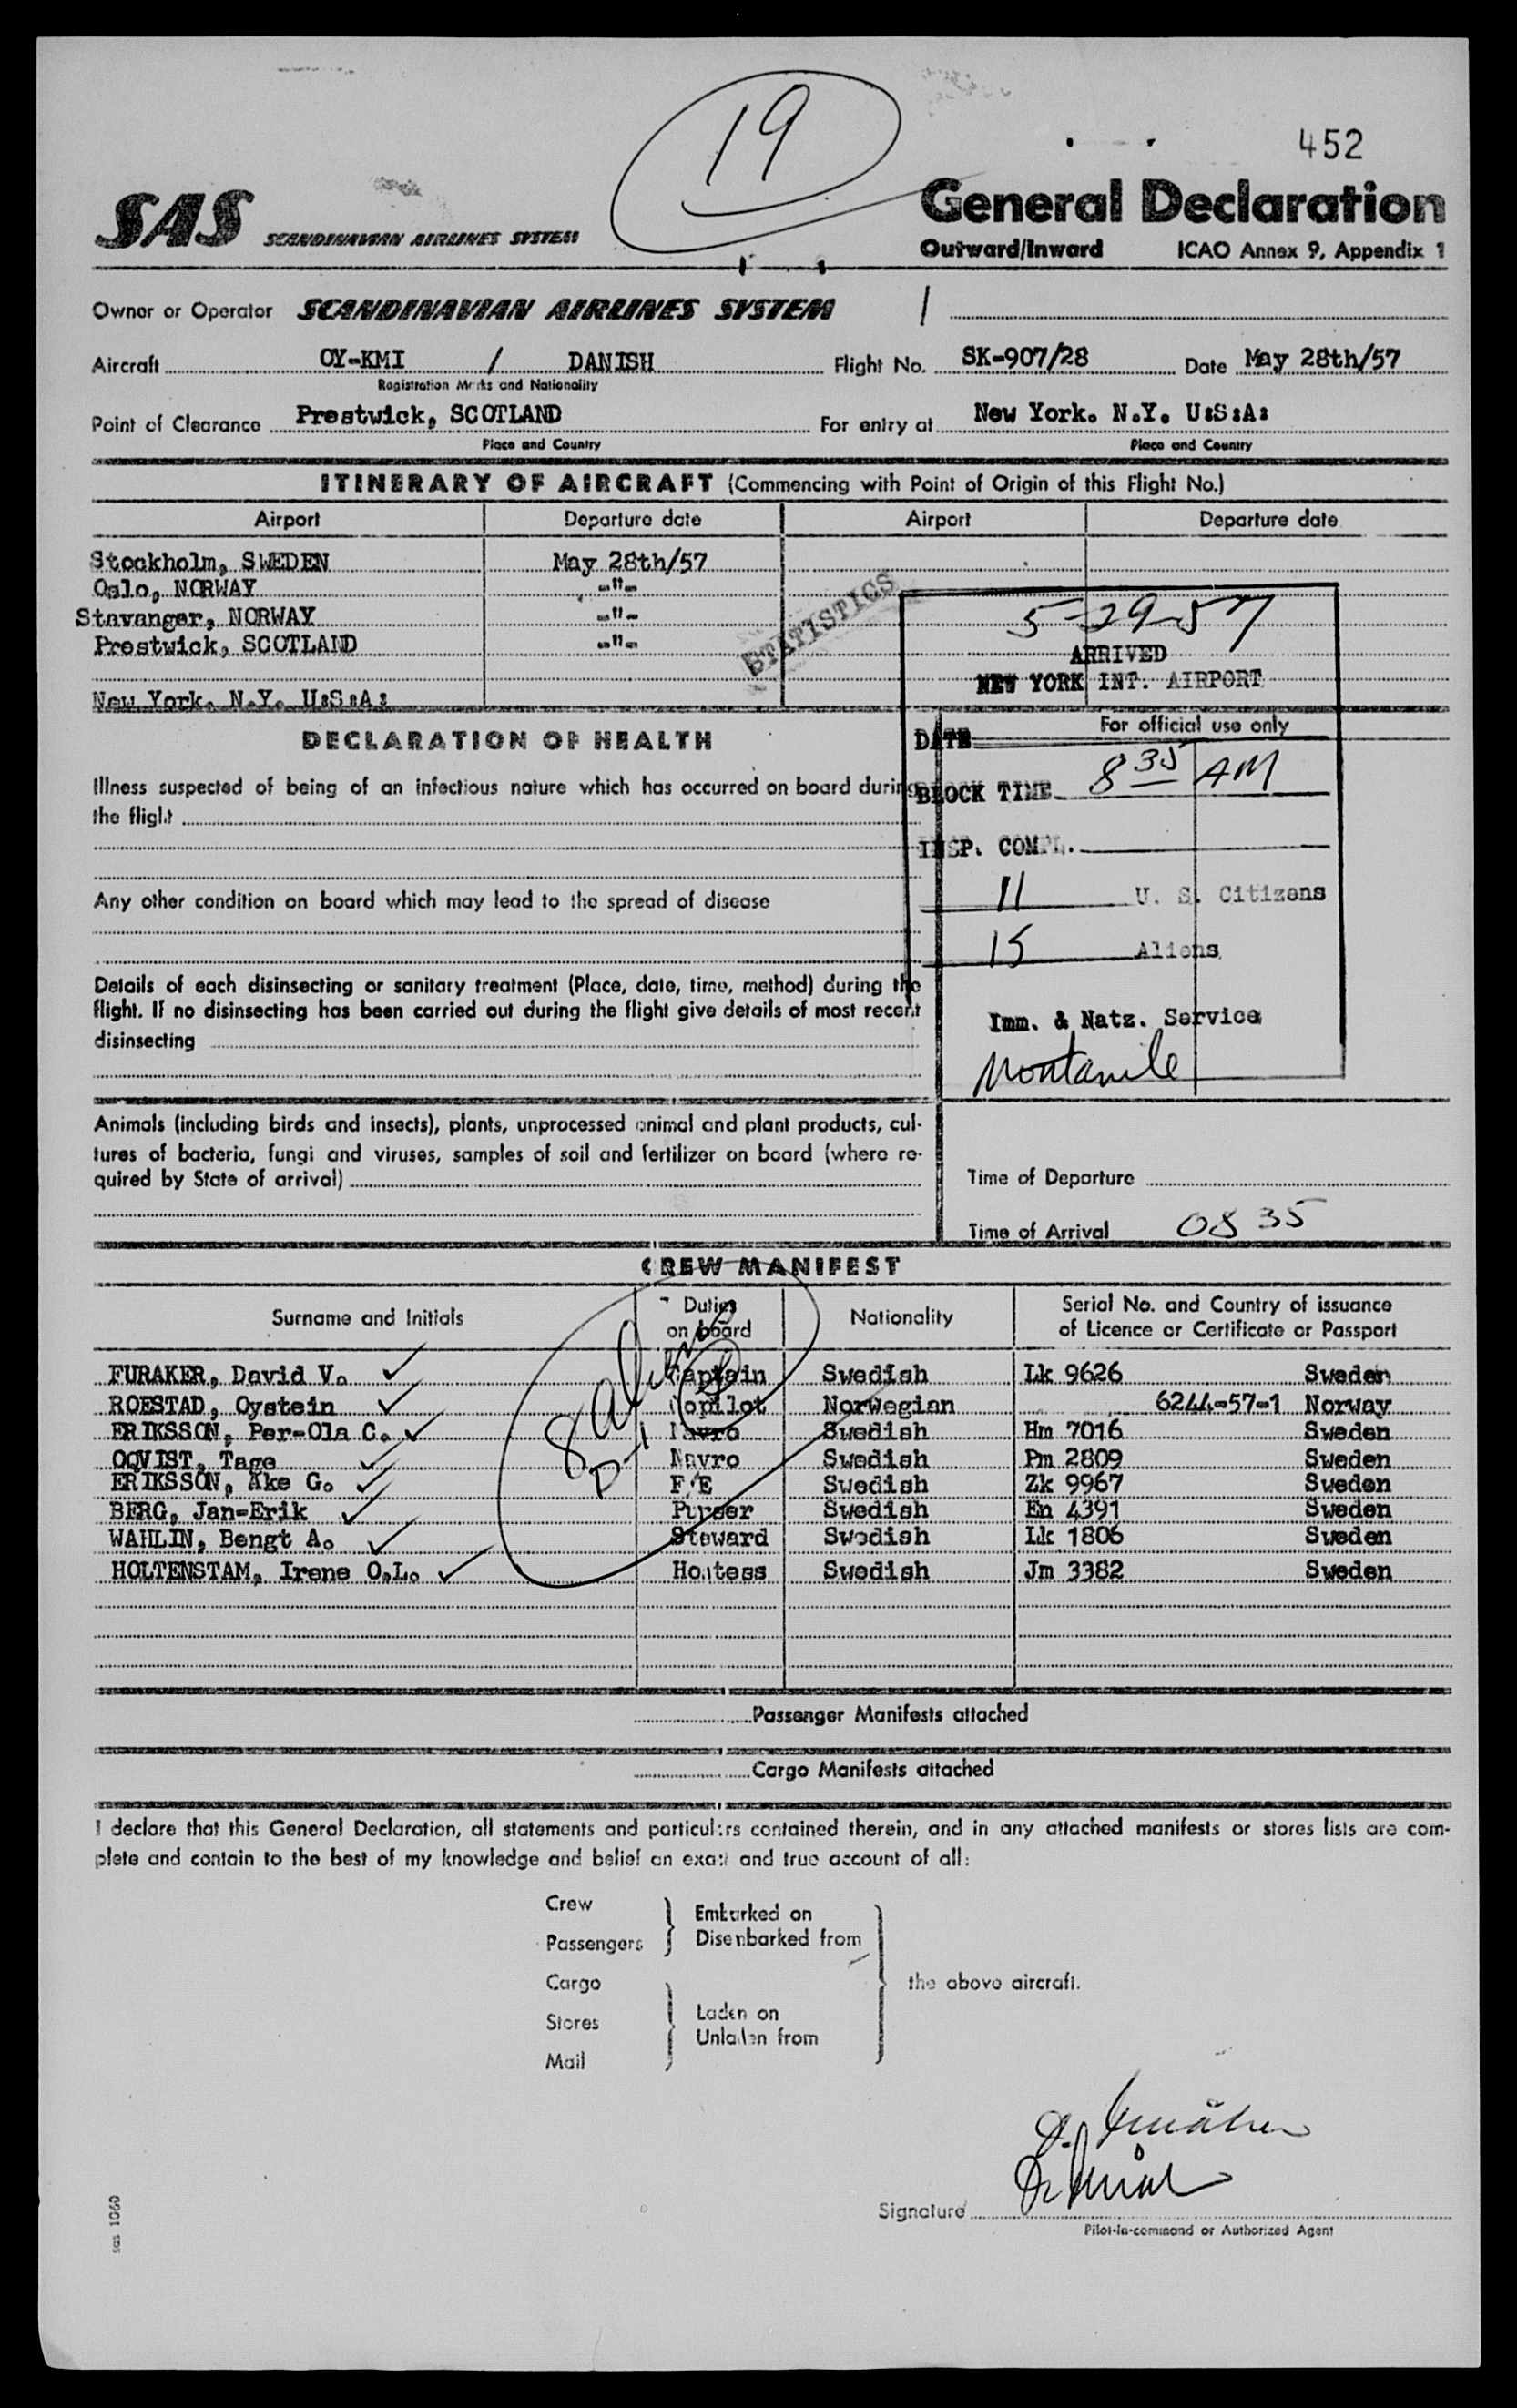 19
452
SAS SCANDINAVIAN AIRLINES SYSTEM
General Declaration
Outward/Inward ICAO Annex 9, Appendix 1
Owner or Operator SCANDINAVIAN AIRLINES SYSTEM
Aircraft OY-KMI / DANISH Flight No. SK-907/28 Date May 28th/57
Registration Marks and Nationality
Point of Clearance Prestwick, SCOTLAND For entry at New York. N.Y. U:S:A:
Place and Country Place and Country
ITINERARY OF AIRCRAFT (Commencing with Point of Origin of this Flight No.)
Airport Departure date Airport Departure date
Stockholm, SWEDEN May 28th/57
Oslo, NORWAY -"-
Stavanger, NORWAY -"-
Prestwick, SCOTLAND -"-
New York. N.Y. U:S:A:
STATISTICS
5-29-57
ARRIVED
NEW YORK INT. AIRPORT
For official use only
DATE
BLOCK TIME 8 35 AM
INSP. COMPL.
11 U. S. Citizens
15 Aliens
Imm. & Natz. Service
DECLARATION OF HEALTH
Illness suspected of being of an infectious nature which has occurred on board during
the flight
Any other condition on board which may lead to the spread of disease
Details of each disinsecting or sanitary treatment (Place, date, time, method) during the
flight. If no disinsecting has been carried out during the flight give details of most recent
disinsecting
Animals (including birds and insects), plants, unprocessed animal and plant products, cul-
tures of bacteria, fungi and viruses, samples of soil and fertilizer on board (where re-
quired by State of arrival)
Time of Departure
Time of Arrival 0835
CREW MANIFEST
Surname and Initials Duties on board Nationality Serial No. and Country of issuance of Licence or Certificate or Passport
FURAKER, David V. Captain Swedish Lk 9626 Sweden
ROESTAD, Oystein Copilot Norwegian 6244-57-1 Norway
ERIKSSON, Per-Ola C. Navro Swedish Hm 7016 Sweden
OQVIST, Tage Navro Swedish Pm 2809 Sweden
ERIKSSON, Ake G. F/E Swedish Zk 9967 Sweden
BERG, Jan-Erik Purser Swedish En 4391 Sweden
WAHLIN, Bengt A. Steward Swedish Lk 1806 Sweden
HOLTENSTAM, Irene O.L. Hostess Swedish Jm 3382 Sweden
8
D-1
Passenger Manifests attached
Cargo Manifests attached
I declare that this General Declaration, all statements and particulars contained therein, and in any attached manifests or stores lists are com-
plete and contain to the best of my knowledge and belief an exact and true account of all:
Crew
Passengers
Embarked on
Disembarked from
Cargo
Stores
Mail
Laden on
Unladen from
the above aircraft.
Signature
Pilot-in-command or Authorized Agent
sas 1060